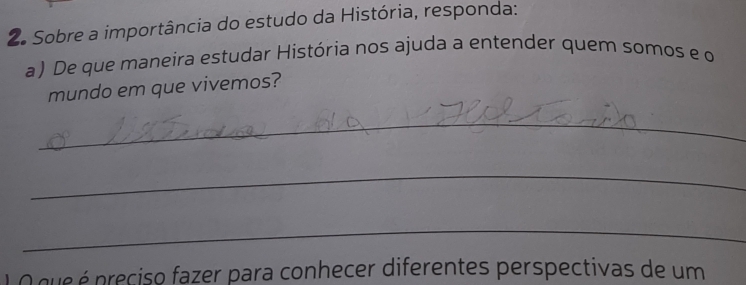 2. Sobre a importância do estudo da História, responda:
a) De que maneira estudar História nos ajuda a entender quem somos e o
mundo em que vivemos?
o da História
O que é preciso fazer para conhecer diferentes perspectivas de um